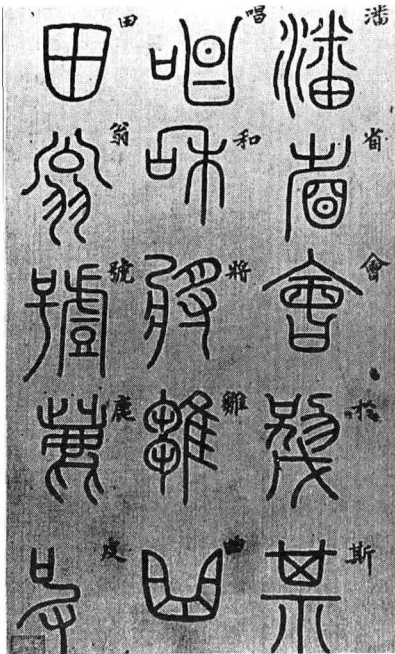 潘省會於斯
唱和將雛曲
田翁號鹿皮